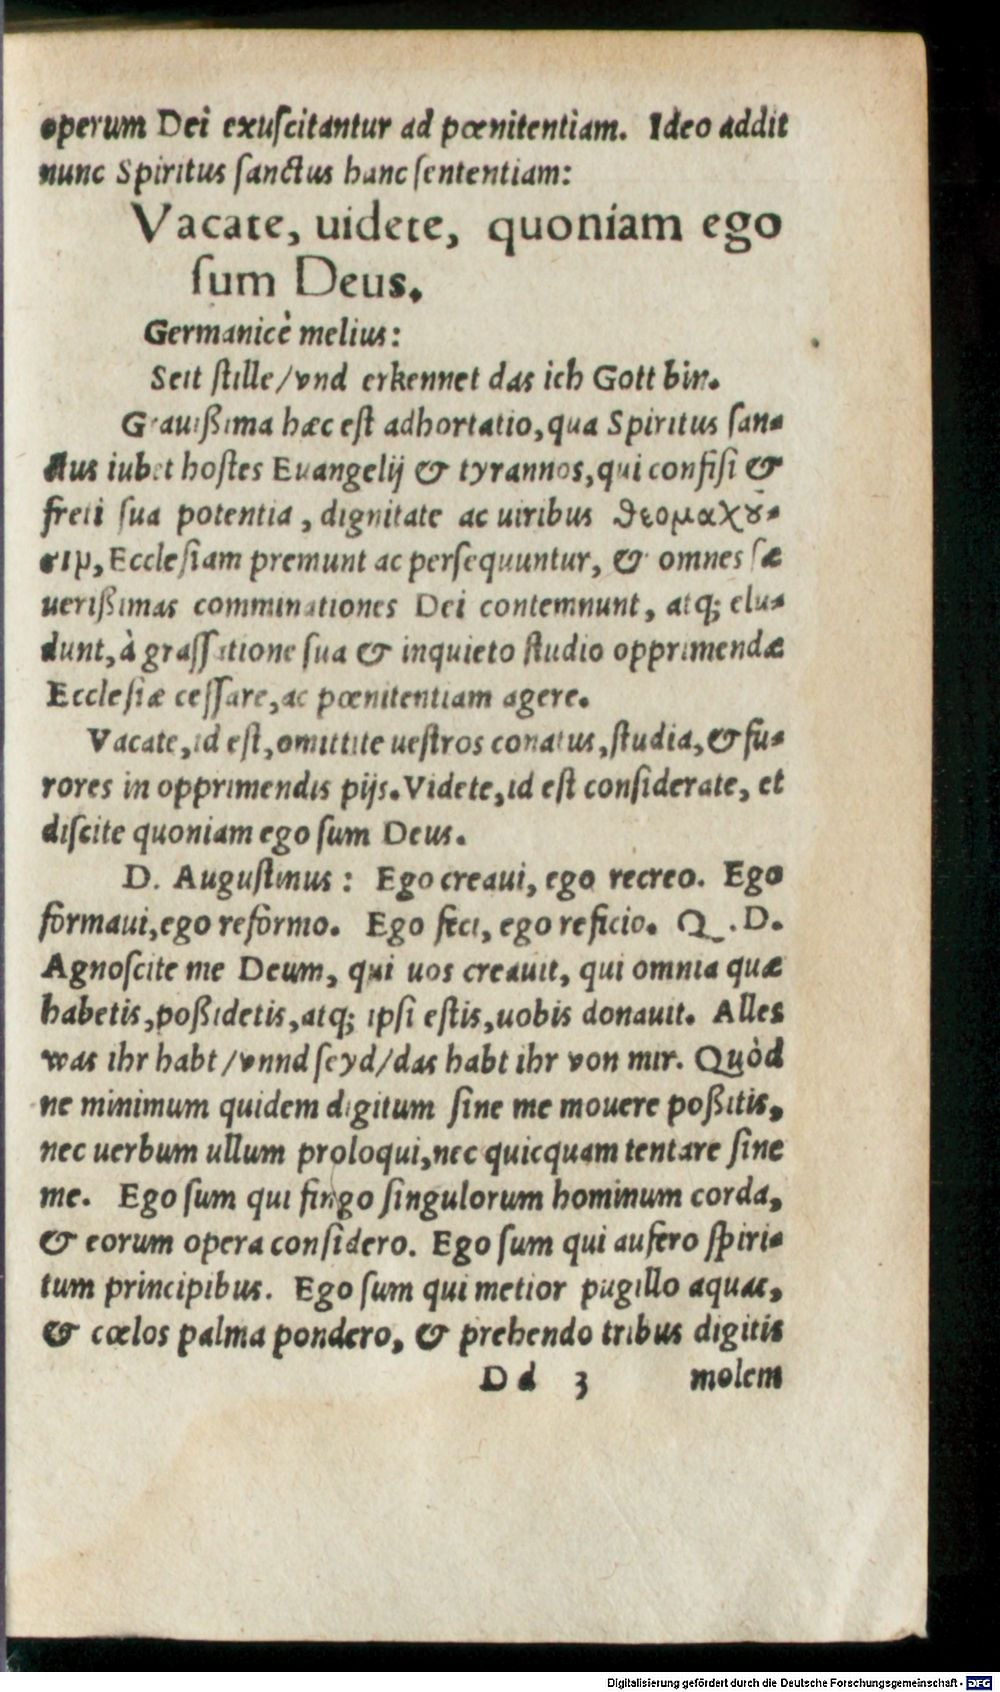 operum Dei exuſcitantur ad pœnitentiam. Ideo addit
nunc Spiritus ſanctus hanc ſententiam:
Vacate, uidete, quoniam ego
ſum Deus.
Germanicè melius:
Seit ſtille/vnd erkennet das ich Gott bin.
Grauißima hæc eſt adhortatio, qua Spiritus ſan-
ctus iubet hoſtes Euangelij & tyrannos, qui confiſi &
freti ſua potentia, dignitate ac uiribus ϑεομαχȣ̃-
σιμ, Eccleſiam premunt ac perſequuntur, & omnes ſæ
uerißimas comminationes Dei contemnunt, atq; elu-
dunt, à graſſatione ſua & inquieto ſtudio opprimendæ
Eccleſiæ ceſſare, ac pœnitentiam agere.
Vacate, id eſt, omittite ueſtros conatus, ſtudia, & fu-
rores in opprimendis pijs. Videte, id eſt conſiderate, et
diſcite quoniam ego ſum Deus.
D. Auguſtinus: Ego creaui, ego recreo. Ego
formaui, ego reformo. Ego feci, ego reficio. Q. D.
Agnoſcite me Deum, qui uos creauit, qui omnia quæ
habetis, poßidetis, atq; ipſi eſtis, uobis donauit. Alles
was ihr habt/vnnd ſeyd/das habt ihr von mir. Quòd
ne minimum quidem digitum ſine me mouere poßitis,
nec uerbum ullum proloqui, nec quicquam tentare ſine
me. Ego ſum qui fingo ſingulorum hominum corda,
& eorum opera conſidero. Ego ſum qui aufero ſpiri-
tum principibus. Ego ſum qui metior pugillo aquas,
& cœlos palma pondero, & prehendo tribus digitis
Dd 3 molem
Digitalisierung gefördert durch die Deutsche Forschungsgemeinschaft - DFG